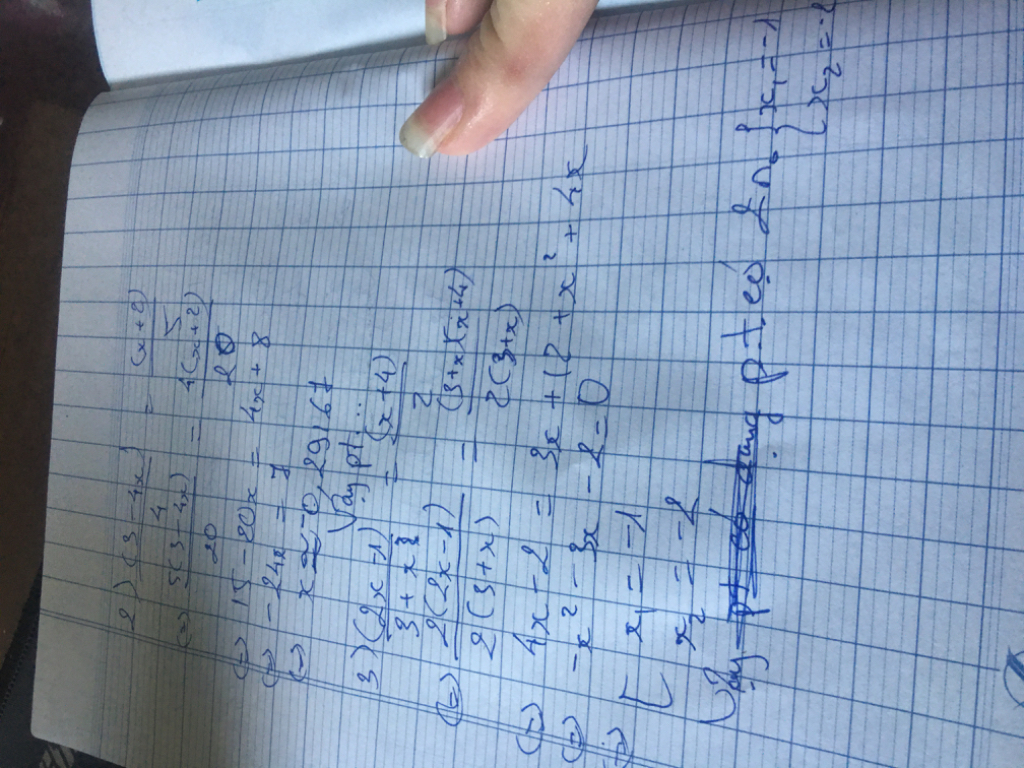 2) (3 - 4x) / 4 = (x + 2) / 5
(=) 5(3 - 4x) / 20 = 4(x + 2) / 20
(=) 15 - 20x = 4x + 8
(=) - 24x = 7
(=) x = - 0,29167
Vậy pt ...
3) (2x - 1) / 3 + x = (x + 4) / 2
(=) 2(2x - 1) / 2(3 + x) = (3 + x)(x + 4) / 2(3 + x)
(=) 4x - 2 = 3x + 12 + x² + 4x
(=) - x² - 3x - 2 = 0
(=) [ x1 = - 1
x2 = - 2
Vậy pt có dạng pt có 2 no { x1 = - 1
{ x2 = - 2